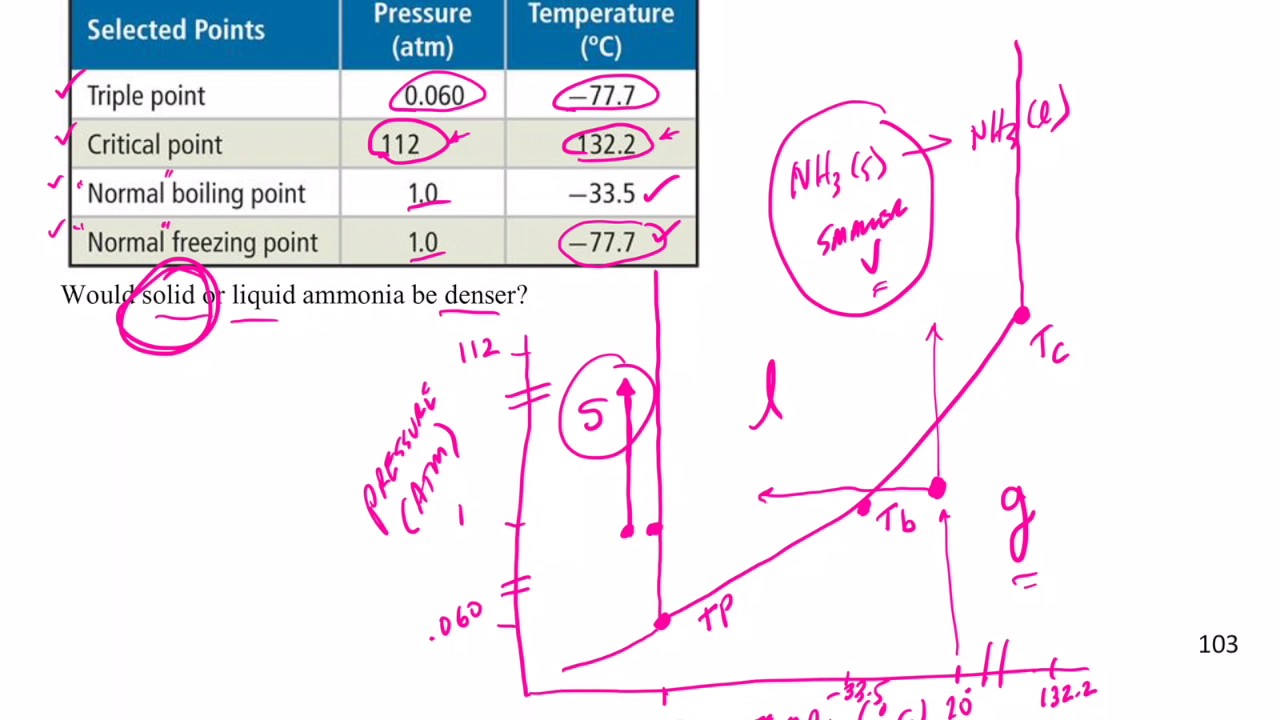 Selected Points Pressure (atm) Temperature (°C)
Triple point 0.060 −77.7
Critical point 112 132.2
"Normal" boiling point 1.0 −33.5
"Normal" freezing point 1.0 −77.7
Would solid or liquid ammonia be denser?
NH3(s) → NH3(l)
112
PRESSURE
(ATM)
1
.060
S
l
g
Tc
Tb
TP
-33.5 20° 132.2
103